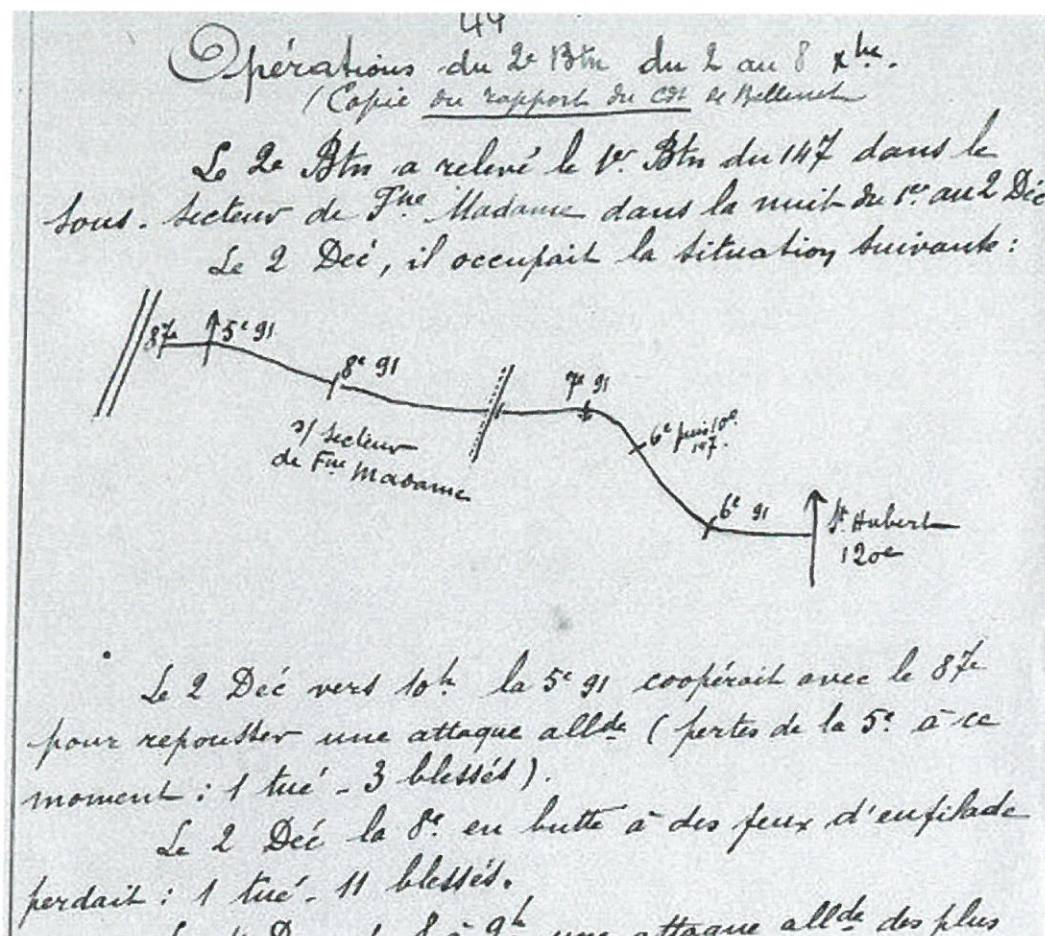 44
Opérations du 2e Btn du 2 au 8 xbre.
(Copie du rapport du cdt de Bellenet
Le 2e Btn a relevé le 1er Btn du 147 dans le
sous-secteur de Fme Madame dans la nuit du 1er au 2 Déc
Le 2 Déc, il occupait la situation suivante :
87e
5e 91
8e 91
7e 91
s/ secteur
de Fme Madame
6e puis 10e
147.
6e 91
St Hubert
120e
Le 2 Déc vers 10h la 5e 91 coopérait avec le 87e
pour repousser une attaque allde (pertes de la 5e à ce
moment : 1 tué - 3 blessés).
Le 2 Déc la 8e en butte à des feux d'enfilade
perdait : 1 tué - 11 blessés.
8 à 9h une attaque allde des plus